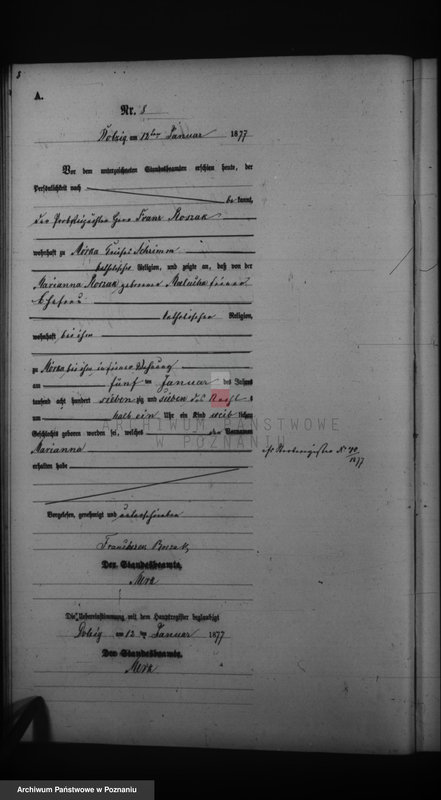 8
A.
Nr. 8
Dolzig am 12ten Januar 1877
Vor dem unterzeichneten Standesbeamten erschien heute, der
Persönlichkeit nach
be kannt,
der Herr Franz Roszak
wohnhaft zu Mórka Kreises Schrimm
katholischer Religion, und zeigte an, daß von der
Marianna Roszak geborenen seiner
Ehefrau
katholischer Religion,
wohnhaft bei ihm
zu Mórka bei ihm in seiner Wohnung
am fünf ten Januar des Jahres
tausend acht hundert sieben zig und sieben des Nachts
um halb ein Uhr ein Kind weib lichen
Geschlechts geboren worden sei, welches den Vornamen
Marianna
erhalten habe
Vorgelesen, genehmigt und unterschrieben
Roszak
Der Standesbeamte.
Merk
Die Uebereinstimmung mit dem Hauptregister beglaubigt
Dolzig am 12 ten Januar 1877
Der Standesbeamte.
Merk
Sterberegister No
1877
ARCHIWUM PAŃSTWOWE
W POZNANIU
Archiwum Państwowe w Poznaniu